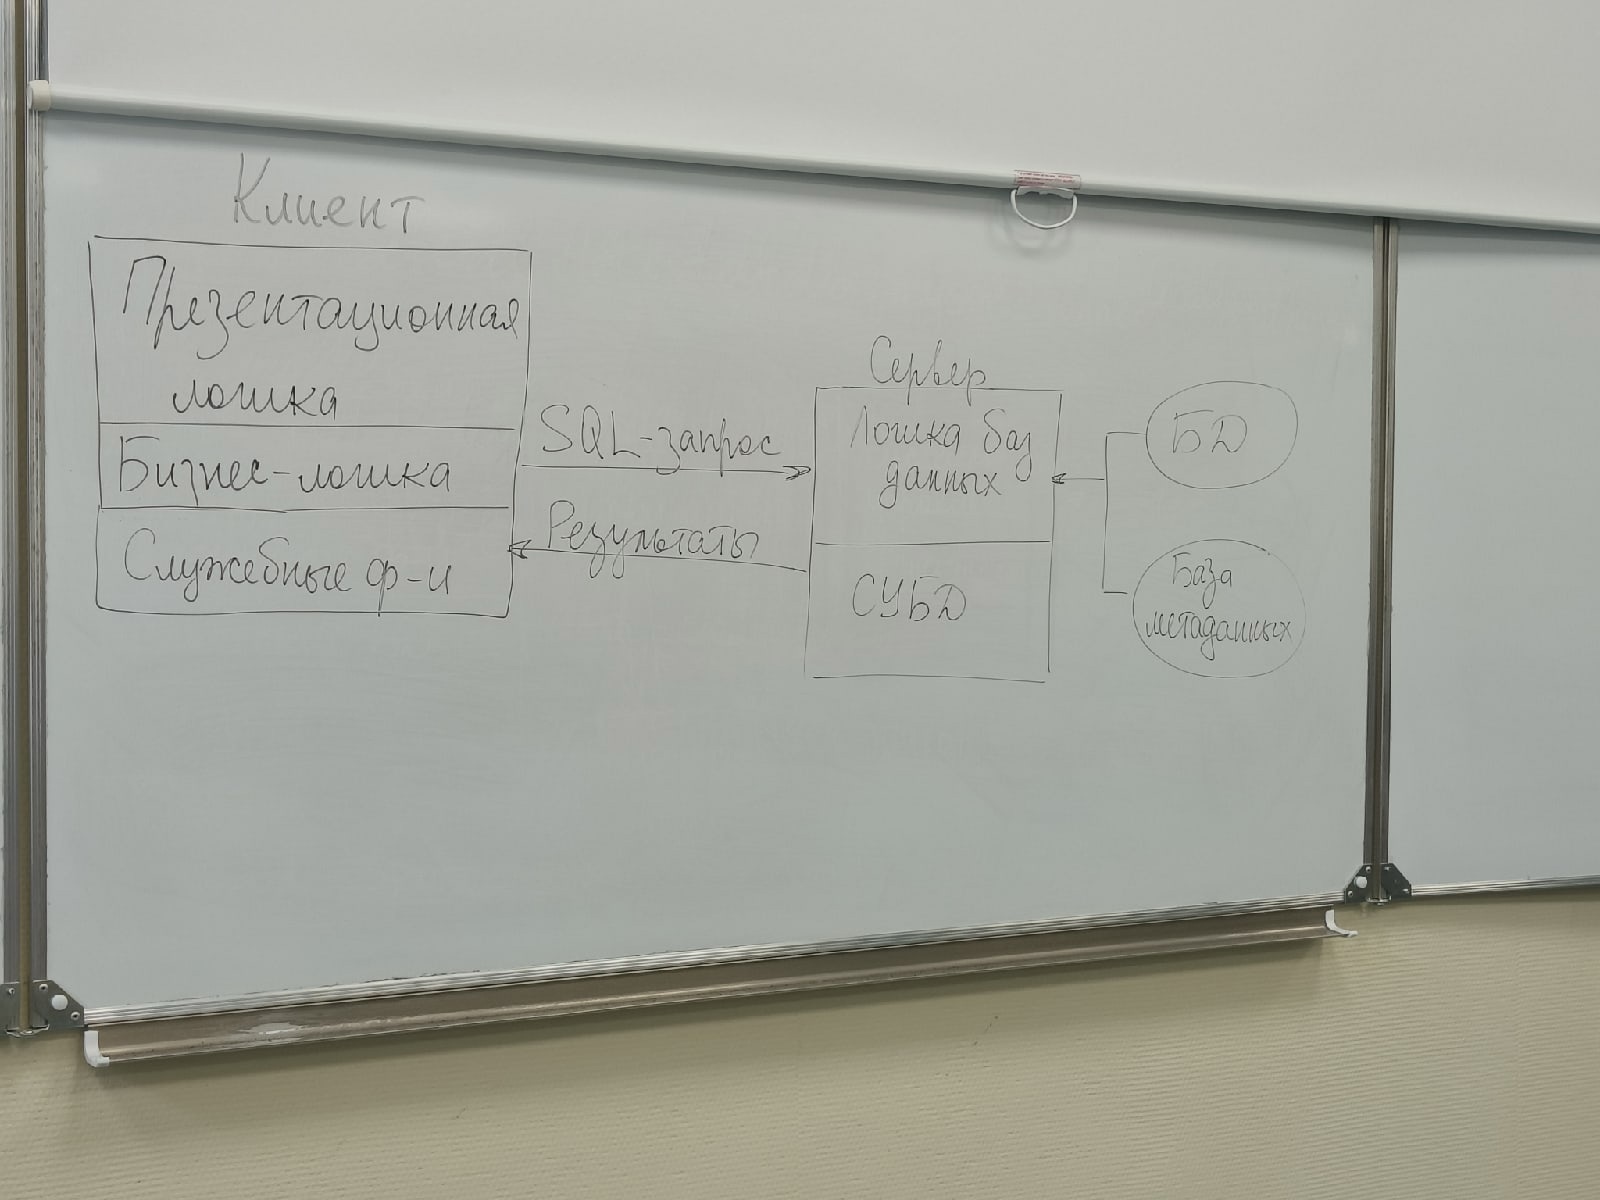 Клиент
Презентационная
логика
Бизнес-логика
Служебные ф-и
SQL-запрос
Результаты
Сервер
Логика баз
данных
СУБД
БД
База
метаданных